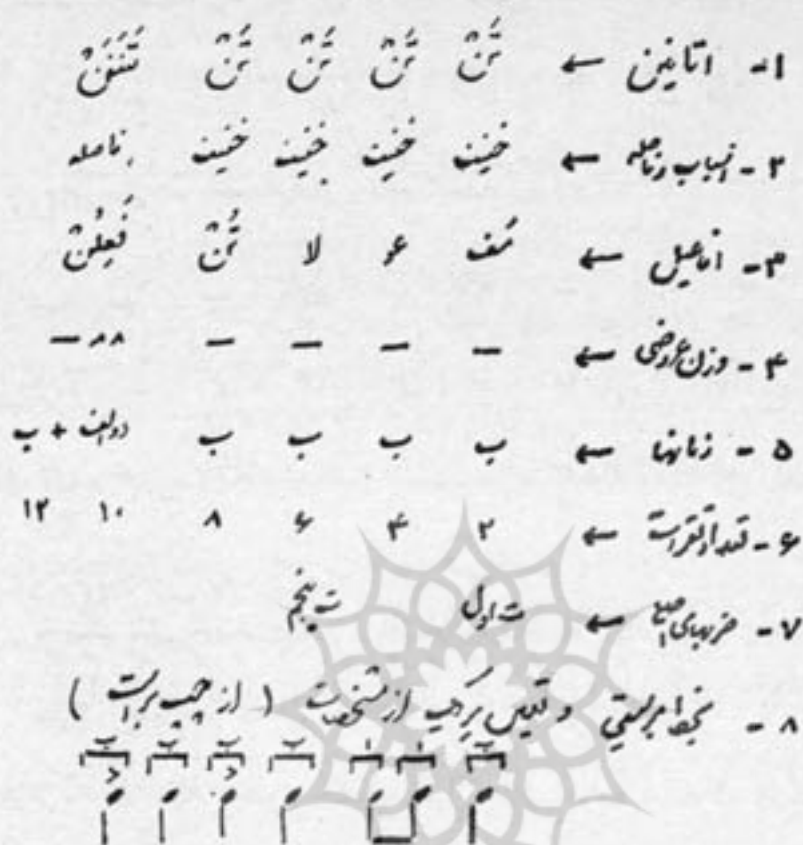 ۱- اتانین ← تَنْ تَنْ تَنْ تَنْ تَنَنَنْ
۲- اسباب و فاصله ← خفیف خفیف خفیف خفیف فاصله
۳- افاعیل ← مف عو لا تُنْ فَعِلُنْ
۴- وزن عروضی ← — — — — ۸۸—
۵- زمانها ← ب ب ب ب دو الف + ب
۶- تعداد نقرات ← ۲ ۴ ۶ ۸ ۱۰ ۱۲
۷- ضربهای اصلی ← ت اول ت پنجم
۸- بخط موسیقی و تعیین هر یک از مشخصات (از چپ براست)
ب ۱ ۱ ب ب ب ب